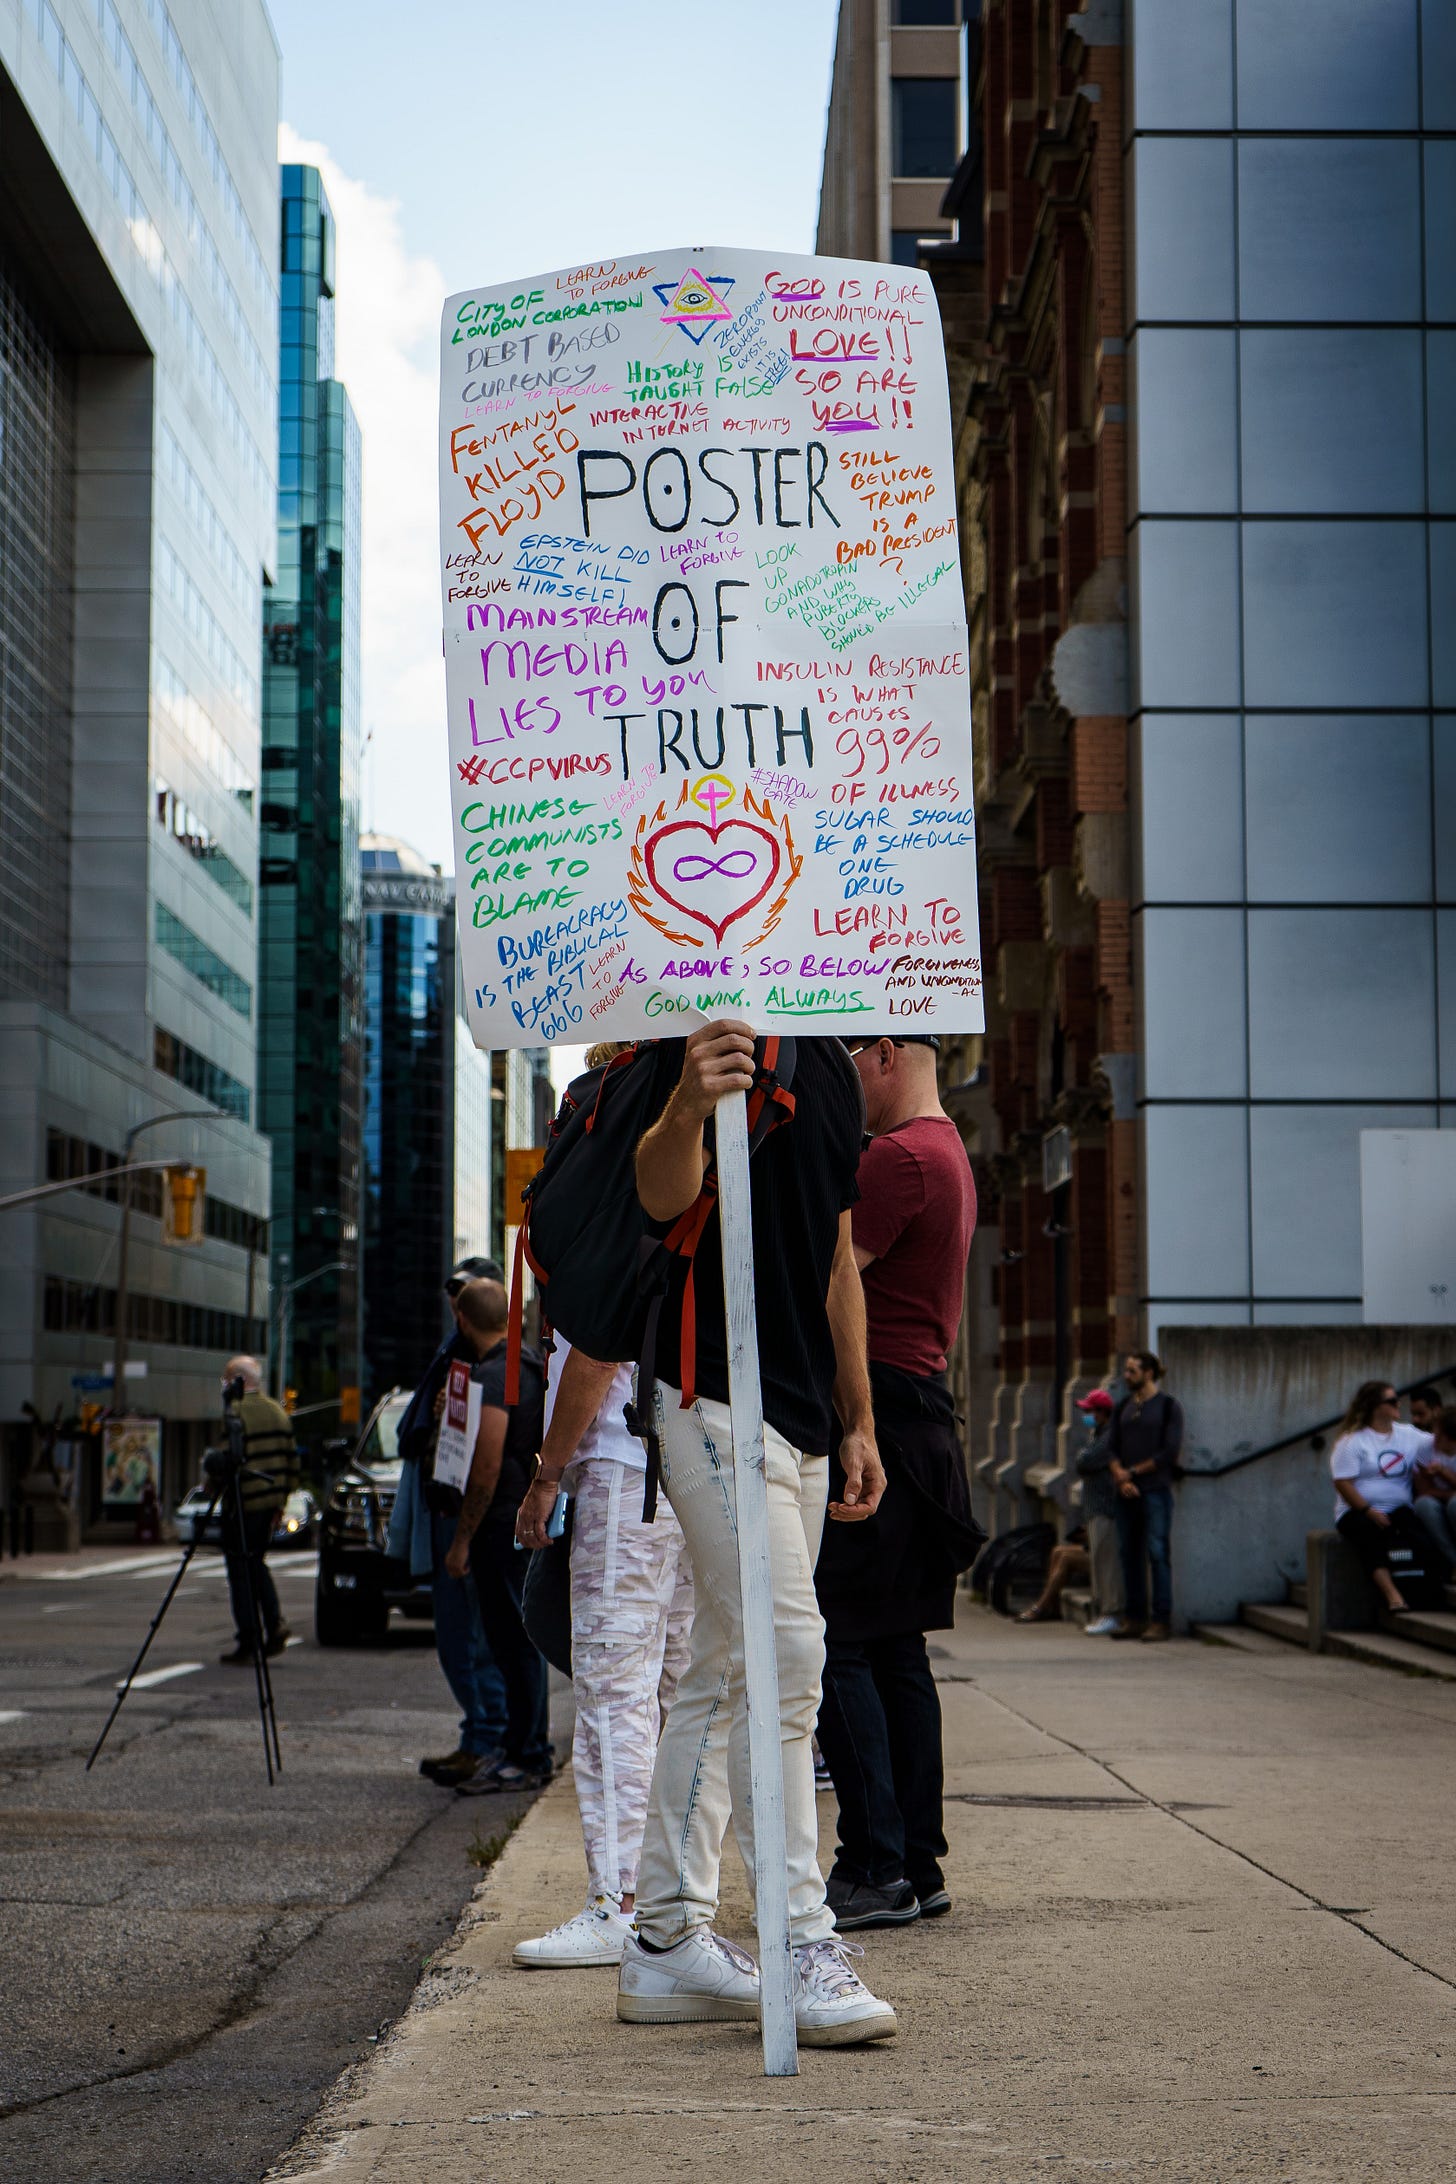 CITY OF
LONDON CORPORATION
LEARN
TO FORGIVE
DEBT BASED
CURRENCY
LEARN TO FORGIVE
FENTANYL
KILLED
FLOYD
LEARN
TO
FORGIVE
ZEROPOINT
ENERGY
EXISTS
IT IS
FREE!
HISTORY IS
TAUGHT FALSE
INTERACTIVE
INTERNET ACTIVITY
GOD IS PURE
UNCONDITIONAL
LOVE!!
SO ARE
YOU!!
POSTER
OF
TRUTH
STILL
BELIEVE
TRUMP
IS A
BAD PRESIDENT
?
EPSTEIN DID
NOT KILL
HIMSELF!
LEARN TO
FORGIVE
LOOK
UP
GONADOTROPIN
AND WHY
PUBERTY
BLOCKERS
SHOULD BE ILLEGAL
MAINSTREAM
MEDIA
LIES TO YOU
INSULIN RESISTANCE
IS WHAT
CAUSES
99%
OF ILLNESS
#CCPVIRUS
LEARN TO
FORGIVE
#SHADOW
GATE
CHINESE
COMMUNISTS
ARE TO
BLAME
SUGAR SHOULD
BE A SCHEDULE
ONE
DRUG
LEARN TO
FORGIVE
BUREACRACY
IS THE BIBLICAL
BEAST
666
LEARN
TO
FORGIVE
AS ABOVE, SO BELOW
GOD WINS. ALWAYS
FORGIVENESS
AND UNCONDITION
-AL
LOVE